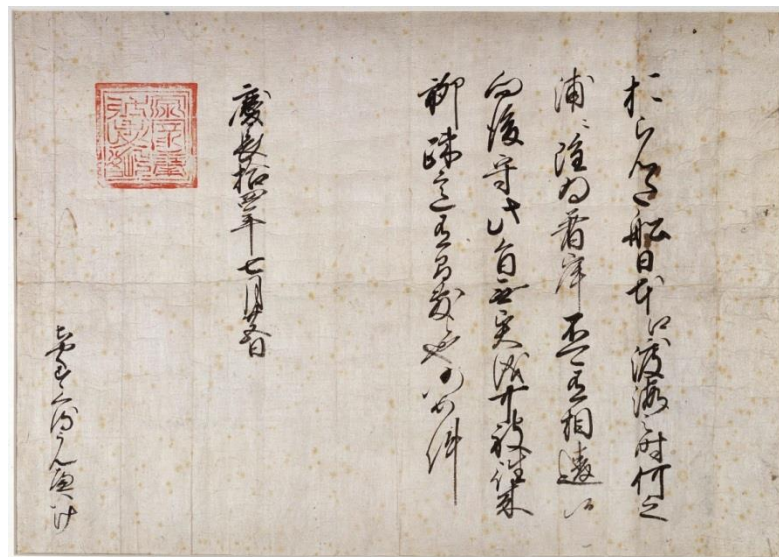 おらんた船日本江渡海之時何之
浦ニ雖為着岸不可有相違候
向後守此旨無異儀可被往来
聊疎意有間敷候也仍如件
慶長拾四年七月廿五日
ちやくすくるうんへいけ